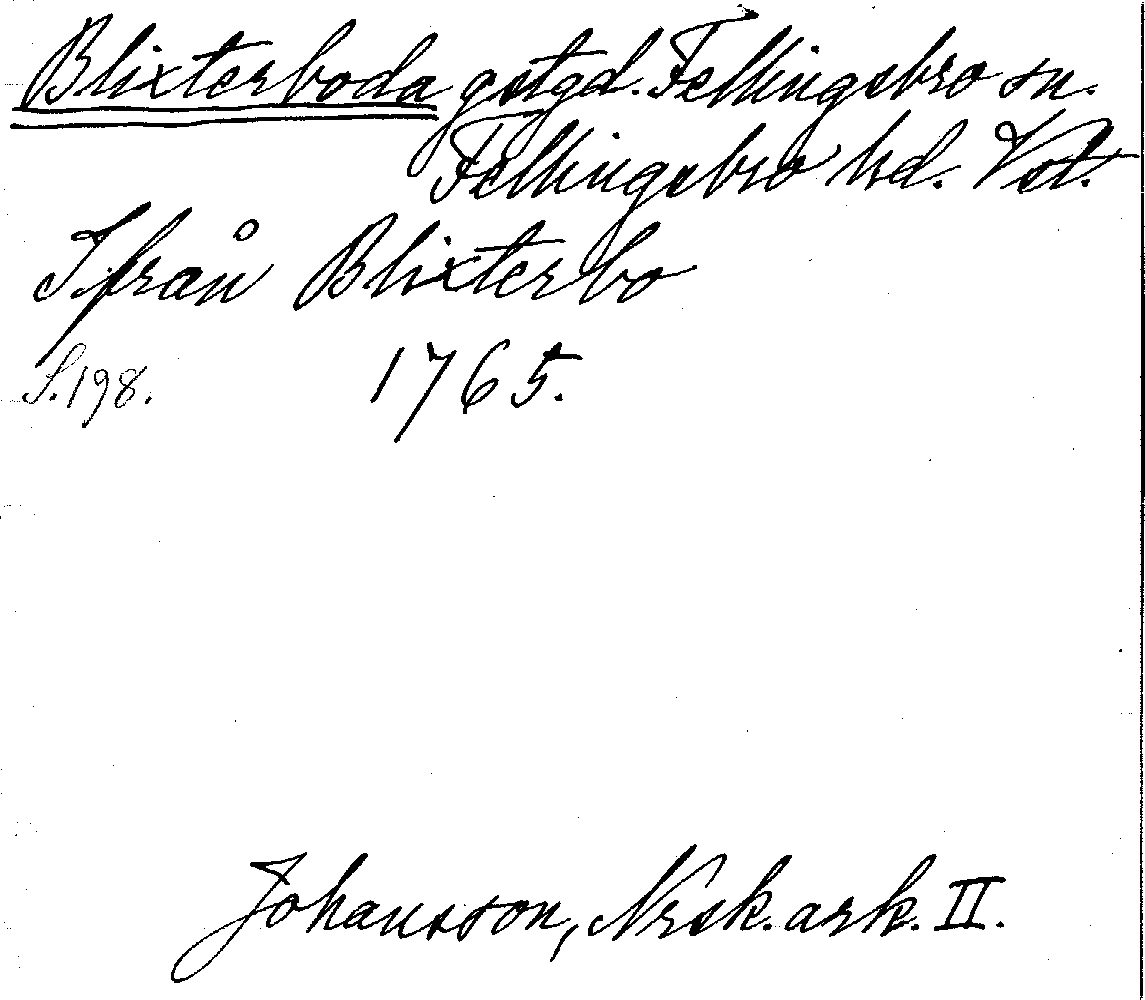 Blixterboda gstgd. Fellingsbro sn.
Fellingsbro hd. Vstl.
Ifrån Blixterbo
S. 198. 1765.
Johansson, Nrsk. ark. II.